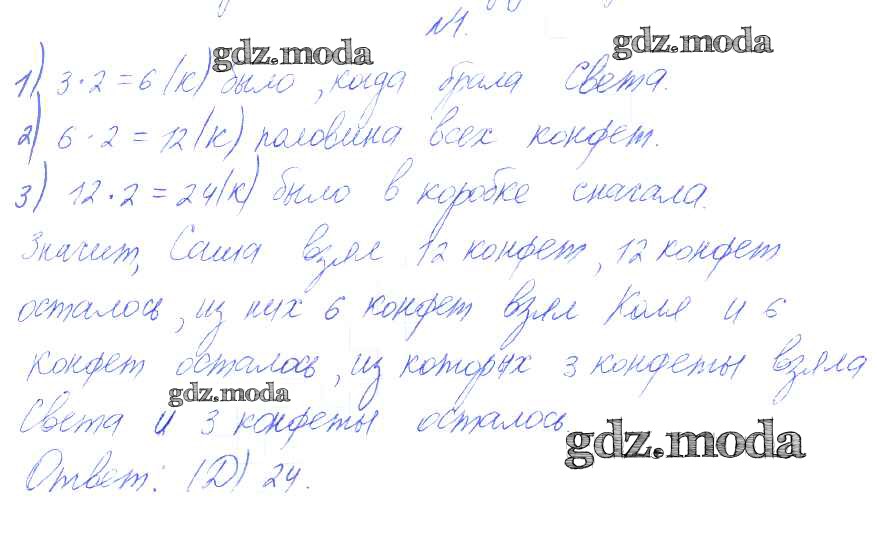 №1.
gdz.moda gdz.moda
1) 3·2=6(к) было, когда брала Света.
2) 6·2=12(к) половина всех конфет.
3) 12·2=24(к) было в коробке сначала.
Значит, Саша взял 12 конфет, 12 конфет
осталось, из них 6 конфет взял Коля и 6
конфет осталось, из которых 3 конфеты взяла
gdz.moda
Света и 3 конфеты осталось.
gdz.moda
Ответ: (D) 24.